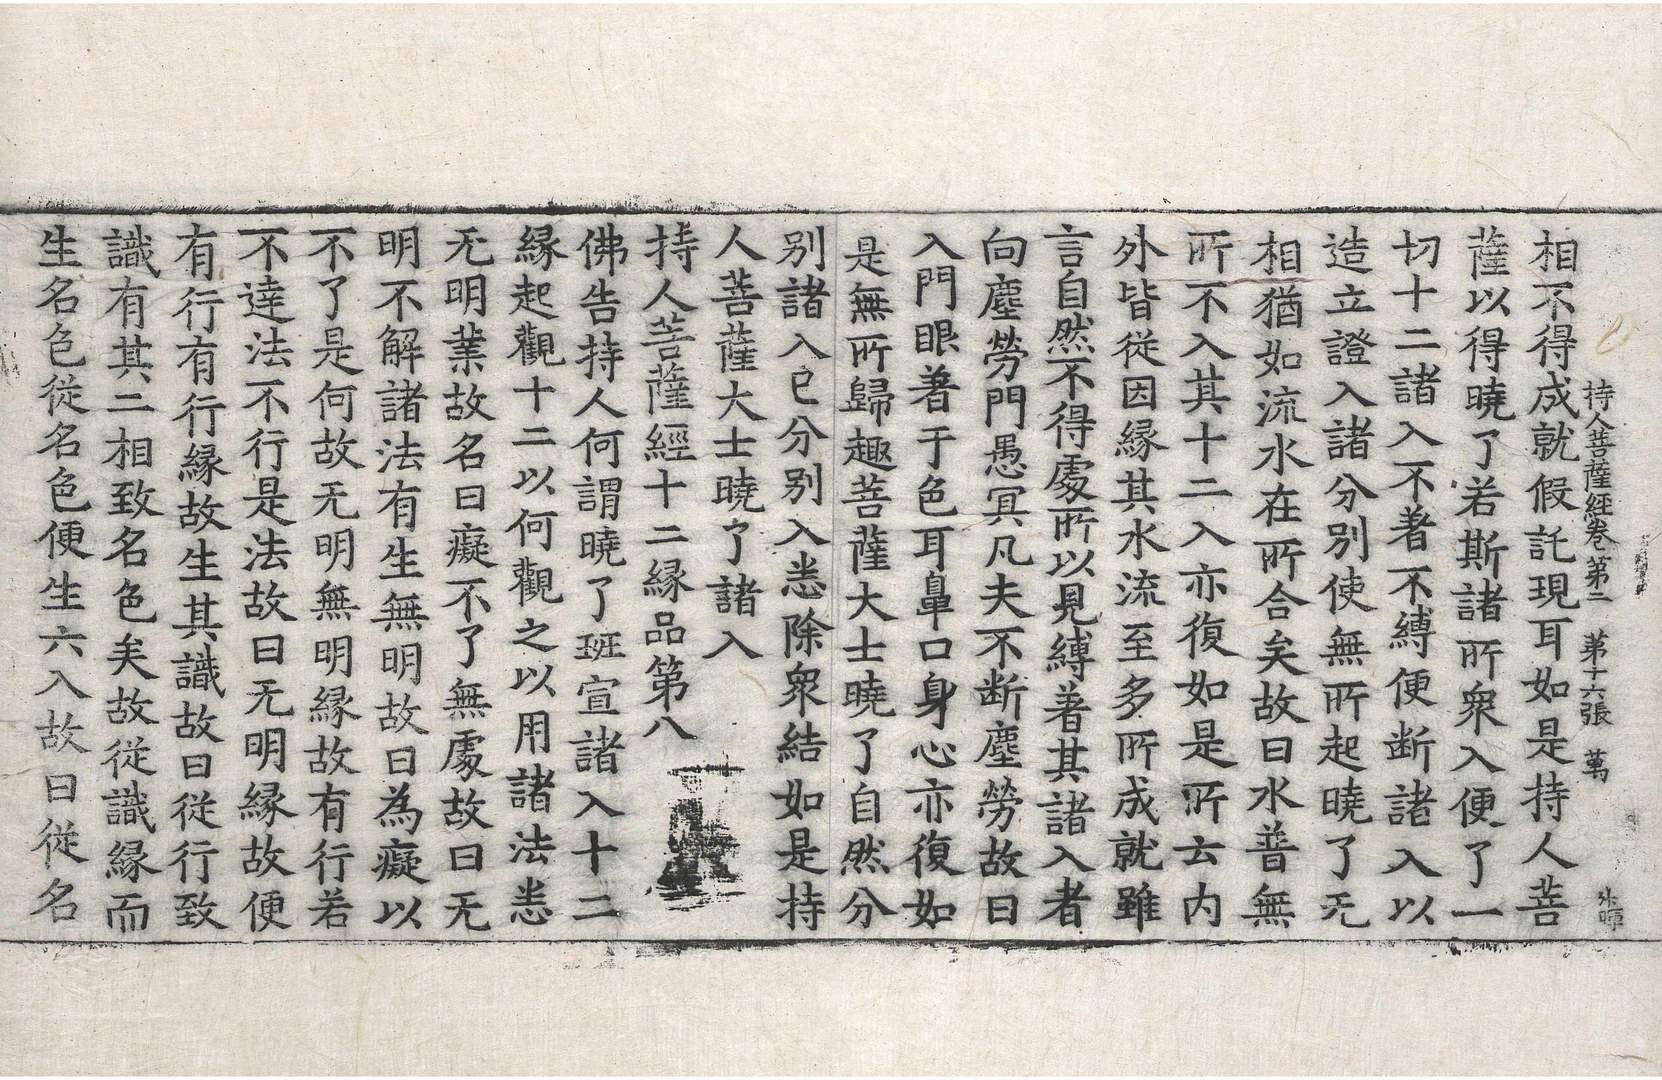 持人菩薩經卷第二　第十六張　萬
相不得成就假託現耳如是持人菩
薩以得曉了若斯諸所衆入便了一
切十二諸入不著不縛便断諸入以
造立證入諸分别使無所起曉了无
相猶如流水在所合矣故曰水普無
所不入其十二入亦復如是所云内
外皆從因緣其水流至多所成就雖
言自然不得處所以見縛著其諸入者
向塵勞門愚冥凡夫不断塵勞故曰
入門眼著于色耳鼻口身心亦復如
是無所歸趣菩薩大士曉了自然分
别諸入已分别入悉除衆結如是持
人菩薩大士曉了諸入
持人菩薩經十二緣品第八
佛告持人何謂曉了班宣諸入十二
緣起觀十二以何觀之以用諸法悉
无明業故名曰癡不了無處故曰无
明不解諸法有生無明故曰為癡以
不了是何故无明無明緣故有行若
不達法不行是法故曰无明緣故便
有行有行緣故生其識故曰從行致
識有其二相致名色矣故從識緣而
生名色從名色便生六入故曰從名